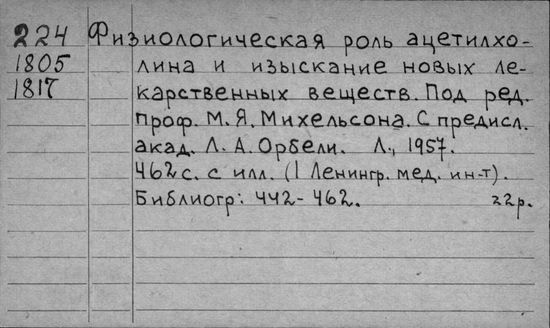 224 Физиологическая роль ацетилхо-
1805 лина и изыскание новых ле-
1817 карственных веществ. Под ред.
проф. М.Я. Михельсона. С предисл.
акад. Л. А. Орбели. Л., 1957.
462 с. с илл. (1 Ленингр. мед. ин-т).
Библиогр: 442-462. 22р.